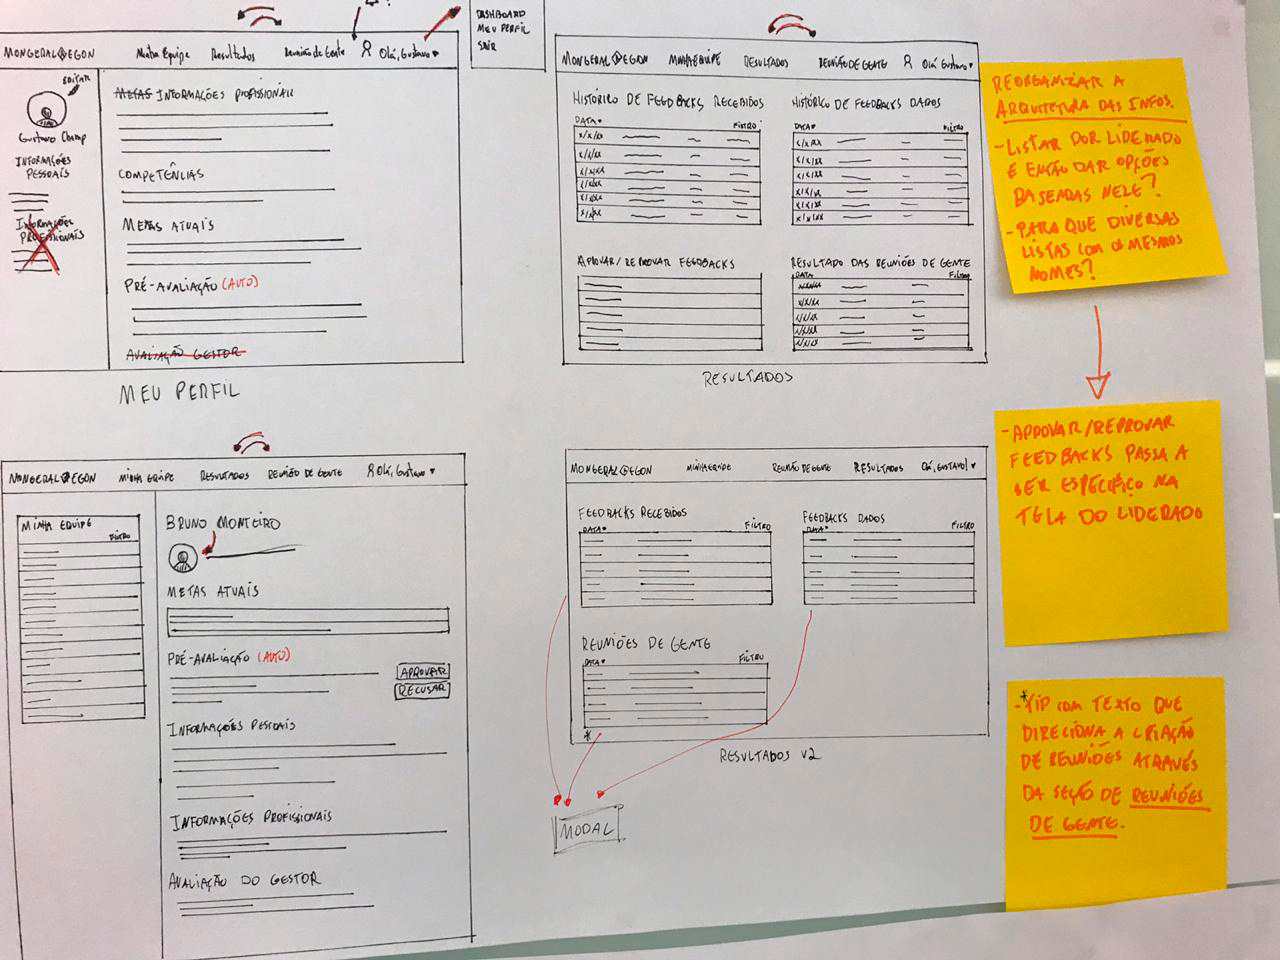 DASHBOARD
MEU PERFIL
SAIR
MONGERAL AEGON
Minha Equipe
Resultados
Reunião de Gente
Olá, Gustavo
EDITAR
Gustavo Champ
INFORMAÇÕES
PESSOAIS
INFORMAÇÕES
PROFISSIONAIS
METAS INFORMAÇÕES PROFISSIONAIS
COMPETÊNCIAS
METAS ATUAIS
PRÉ-AVALIAÇÃO (AUTO)
AVALIAÇÃO GESTOR
MEU PERFIL
MONGERAL AEGON
MINHA EQUIPE
RESULTADOS
REUNIÃO DE GENTE
Olá, Gustavo
HISTÓRICO DE FEEDBACKS RECEBIDOS
DATA
FILTRO
X/X/XX
X/X/XX
X/X/XX
X/X/XX
X/X/XX
X/X/XX
HISTÓRICO DE FEEDBACKS DADOS
DATA
FILTRO
X/X/XX
X/X/XX
X/X/XX
X/X/XX
X/X/XX
X/X/XX
APROVAR/REPROVAR FEEDBACKS
RESULTADO DAS REUNIÕES DE GENTE
DATA
FILTRO
X/X/XX
X/X/XX
X/X/XX
X/X/XX
X/X/XX
RESULTADOS
REORGANIZAR A
ARQUITETURA DAS INFOS.
- LISTAR POR LIDERADO
E ENTÃO DAR OPÇÕES
BASEADAS NELE?
- PARA QUE DIVERSAS
LISTAS COM OS MESMOS
NOMES?
MONGERAL AEGON
MINHA EQUIPE
RESULTADOS
REUNIÃO DE GENTE
Olá, Gustavo
MINHA EQUIPE
FILTRO
BRUNO MONTEIRO
METAS ATUAIS
PRÉ-AVALIAÇÃO (AUTO)
APROVAR
RECUSAR
INFORMAÇÕES PESSOAIS
INFORMAÇÕES PROFISSIONAIS
AVALIAÇÃO DO GESTOR
MONGERAL AEGON
MINHA EQUIPE
REUNIÃO DE GENTE
RESULTADOS
OLÁ, GUSTAVO!
FEEDBACKS RECEBIDOS
DATA
FILTRO
FEEDBACKS DADOS
DATA
FILTRO
REUNIÕES DE GENTE
DATA
FILTRO
*
RESULTADOS V2
MODAL
- APROVAR/REPROVAR
FEEDBACKS PASSA A
SER ESPECÍFICO NA
TELA DO LIDERADO
-* TIP COM TEXTO QUE
DIRECIONA A CRIAÇÃO
DE REUNIÕES ATRAVÉS
DA SEÇÃO DE REUNIÕES
DE GENTE.